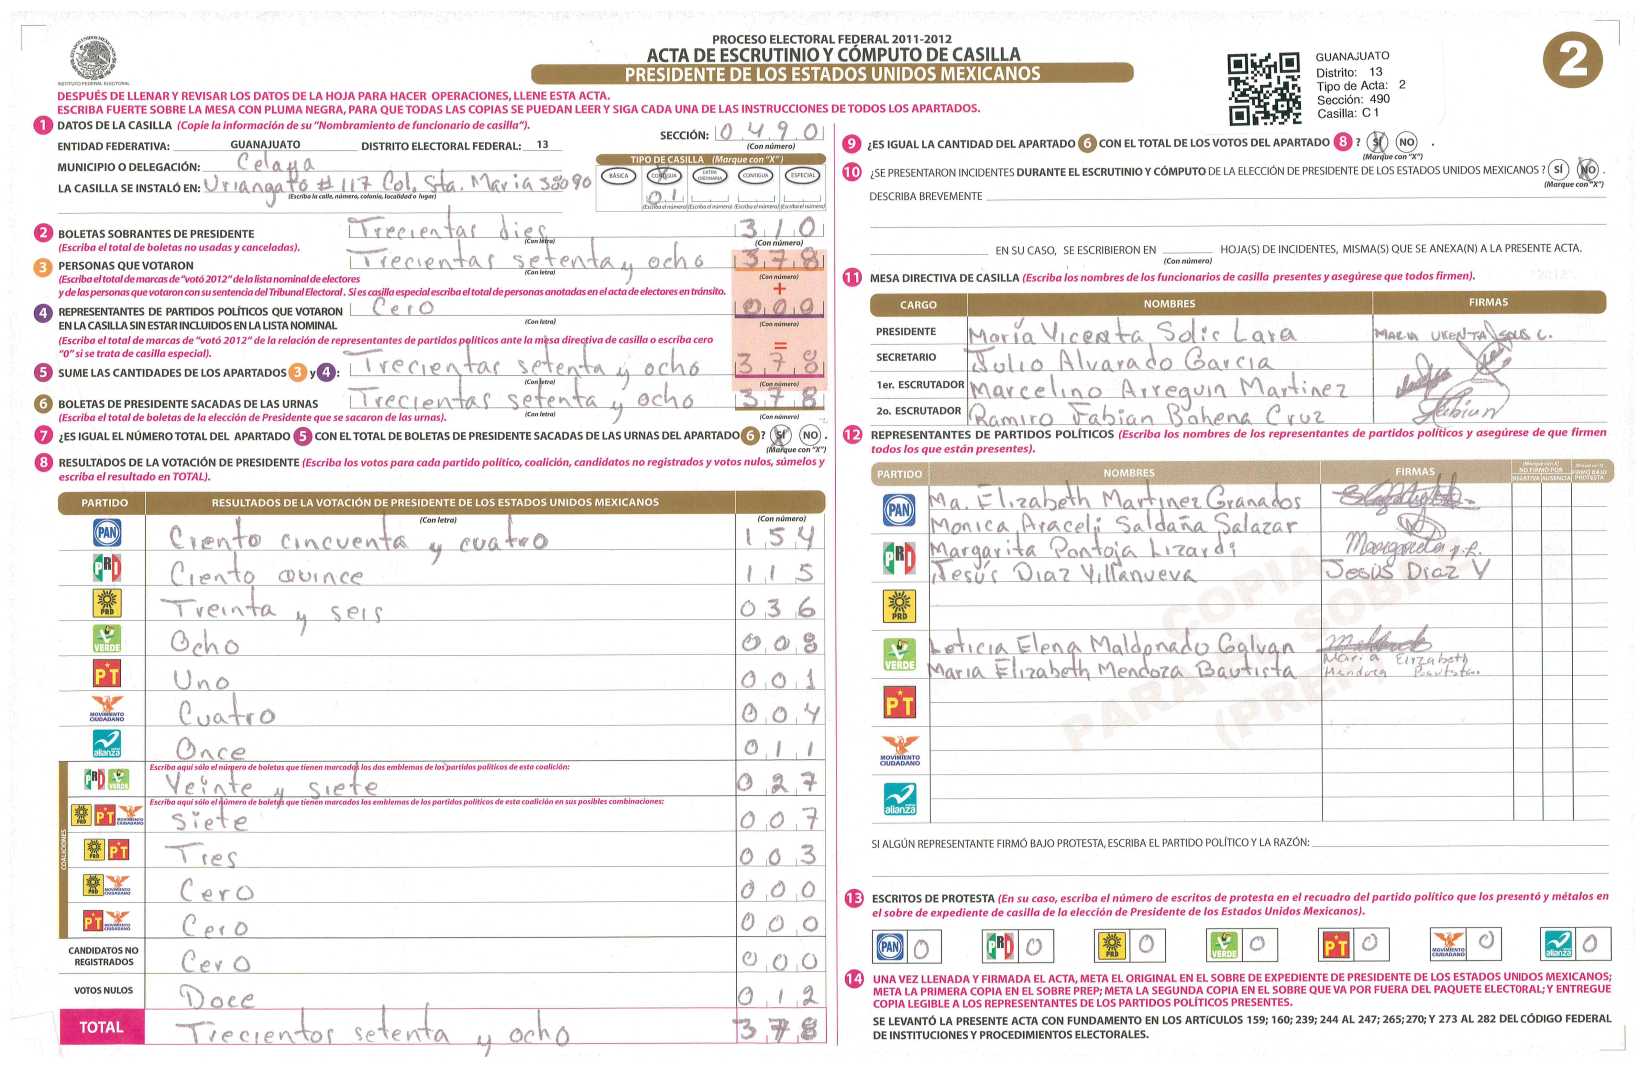 PROCESO ELECTORAL FEDERAL 2011-2012
ACTA DE ESCRUTINIO Y CÓMPUTO DE CASILLA
PRESIDENTE DE LOS ESTADOS UNIDOS MEXICANOS
INSTITUTO FEDERAL ELECTORAL
GUANAJUATO
Distrito: 13
Tipo de Acta: 2
Sección: 490
Casilla: C 1
2
DESPUÉS DE LLENAR Y REVISAR LOS DATOS DE LA HOJA PARA HACER OPERACIONES, LLENE ESTA ACTA.
ESCRIBA FUERTE SOBRE LA MESA CON PLUMA NEGRA, PARA QUE TODAS LAS COPIAS SE PUEDAN LEER Y SIGA CADA UNA DE LAS INSTRUCCIONES DE TODOS LOS APARTADOS.
1 DATOS DE LA CASILLA (Copie la información de su "Nombramiento de funcionario de casilla").
SECCIÓN: 0490
(Con número)
ENTIDAD FEDERATIVA: GUANAJUATO DISTRITO ELECTORAL FEDERAL: 13
MUNICIPIO O DELEGACIÓN: Celaya
LA CASILLA SE INSTALÓ EN: Uriangato # 117 Col. Sta. Maria 38090
(Escriba la calle, número, colonia, localidad o lugar)
TIPO DE CASILLA (Marque con "X")
BÁSICA CONTIGUA EXTRAORDINARIA CONTIGUA ESPECIAL
01
(Escriba el número) (Escriba el número) (Escriba el número) (Escriba el número)
2 BOLETAS SOBRANTES DE PRESIDENTE Trecientas dies 310
(Escriba el total de boletas no usadas y canceladas). (Con letra) (Con número)
3 PERSONAS QUE VOTARON Trecientas setenta y ocho 378
(Escriba el total de marcas de "votó 2012" de la lista nominal de electores (Con letra) (Con número)
y de las personas que votaron con su sentencia del Tribunal Electoral. Si es casilla especial escriba el total de personas anotadas en el acta de electores en tránsito. +
4 REPRESENTANTES DE PARTIDOS POLÍTICOS QUE VOTARON Cero 000
EN LA CASILLA SIN ESTAR INCLUIDOS EN LA LISTA NOMINAL (Con letra) (Con número)
(Escriba el total de marcas de "votó 2012" de la relación de representantes de partidos políticos ante la mesa directiva de casilla o escriba cero =
"0" si se trata de casilla especial).
5 SUME LAS CANTIDADES DE LOS APARTADOS 3 y 4: Trecientas setenta y ocho 378
(Con letra) (Con número)
6 BOLETAS DE PRESIDENTE SACADAS DE LAS URNAS Trecientas setenta y ocho 378
(Escriba el total de boletas de la elección de Presidente que se sacaron de las urnas). (Con letra) (Con número)
7 ¿ES IGUAL EL NÚMERO TOTAL DEL APARTADO 5 CON EL TOTAL DE BOLETAS DE PRESIDENTE SACADAS DE LAS URNAS DEL APARTADO 6 ? SÍ NO .
(Marque con "X")
8 RESULTADOS DE LA VOTACIÓN DE PRESIDENTE (Escriba los votos para cada partido político, coalición, candidatos no registrados y votos nulos, súmelos y
escriba el resultado en TOTAL).
PARTIDO RESULTADOS DE LA VOTACIÓN DE PRESIDENTE DE LOS ESTADOS UNIDOS MEXICANOS
(Con letra) (Con número)
PAN Ciento cincuenta y cuatro 154
PRI Ciento quince 115
PRD Treinta y seis 036
VERDE Ocho 008
PT Uno 001
MOVIMIENTO CIUDADANO Cuatro 004
alianza Once 011
COALICIONES
Escriba aquí sólo el número de boletas que tienen marcados los dos emblemas de los partidos políticos de esta coalición:
PRI VERDE Veinte y siete 027
Escriba aquí sólo el número de boletas que tienen marcados los emblemas de los partidos políticos de esta coalición en sus posibles combinaciones:
PRD PT MOVIMIENTO CIUDADANO Siete 007
PRD PT Tres 003
PRD MOVIMIENTO CIUDADANO Cero 000
PT MOVIMIENTO CIUDADANO Cero 000
CANDIDATOS NO REGISTRADOS Cero 000
VOTOS NULOS Doce 012
TOTAL Trecientos setenta y ocho 378
9 ¿ES IGUAL LA CANTIDAD DEL APARTADO 6 CON EL TOTAL DE LOS VOTOS DEL APARTADO 8 ? SÍ NO .
(Marque con "X")
10 ¿SE PRESENTARON INCIDENTES DURANTE EL ESCRUTINIO Y CÓMPUTO DE LA ELECCIÓN DE PRESIDENTE DE LOS ESTADOS UNIDOS MEXICANOS ? SÍ NO .
(Marque con "X")
DESCRIBA BREVEMENTE
EN SU CASO, SE ESCRIBIERON EN HOJA(S) DE INCIDENTES, MISMA(S) QUE SE ANEXA(N) A LA PRESENTE ACTA.
(Con número)
11 MESA DIRECTIVA DE CASILLA (Escriba los nombres de los funcionarios de casilla presentes y asegúrese que todos firmen).
CARGO NOMBRES FIRMAS
PRESIDENTE María Vicenta Solis Lara
SECRETARIO Julio Alvarado Garcia
1er. ESCRUTADOR Marcelino Arreguin Martinez
2o. ESCRUTADOR Ramiro Fabian Bahena Cruz Fabian
12 REPRESENTANTES DE PARTIDOS POLÍTICOS (Escriba los nombres de los representantes de partidos políticos y asegúrese de que firmen
todos los que están presentes).
PARTIDO NOMBRES FIRMAS (Marque con X) NO FIRMÓ POR NEGATIVA AUSENCIA FIRMÓ BAJO PROTESTA
PAN Ma. Elizabeth Martinez Granados
Monica Araceli Saldaña Salazar
PRI Margarita Pantoja Lizardi Margarita P.R.
Jesús Diaz Villanueva Jesús Diaz V
PRD
VERDE Leticia Elena Maldonado Galvan
Maria Elizabeth Mendoza Bautista Maria Elizabeth
Mendoza Bautista
PT
MOVIMIENTO CIUDADANO
alianza
COPIA
PARA EL SOBRE
(PREP)
SI ALGÚN REPRESENTANTE FIRMÓ BAJO PROTESTA, ESCRIBA EL PARTIDO POLÍTICO Y LA RAZÓN:
13 ESCRITOS DE PROTESTA (En su caso, escriba el número de escritos de protesta en el recuadro del partido político que los presentó y métalos en
el sobre de expediente de casilla de la elección de Presidente de los Estados Unidos Mexicanos).
PAN 0 PRI 0 PRD 0 VERDE 0 PT 0 MOVIMIENTO CIUDADANO 0 alianza 0
14 UNA VEZ LLENADA Y FIRMADA EL ACTA, META EL ORIGINAL EN EL SOBRE DE EXPEDIENTE DE PRESIDENTE DE LOS ESTADOS UNIDOS MEXICANOS;
META LA PRIMERA COPIA EN EL SOBRE PREP; META LA SEGUNDA COPIA EN EL SOBRE QUE VA POR FUERA DEL PAQUETE ELECTORAL; Y ENTREGUE
COPIA LEGIBLE A LOS REPRESENTANTES DE LOS PARTIDOS POLÍTICOS PRESENTES.
SE LEVANTÓ LA PRESENTE ACTA CON FUNDAMENTO EN LOS ARTÍCULOS 159; 160; 239; 244 AL 247; 265; 270; Y 273 AL 282 DEL CÓDIGO FEDERAL
DE INSTITUCIONES Y PROCEDIMIENTOS ELECTORALES.